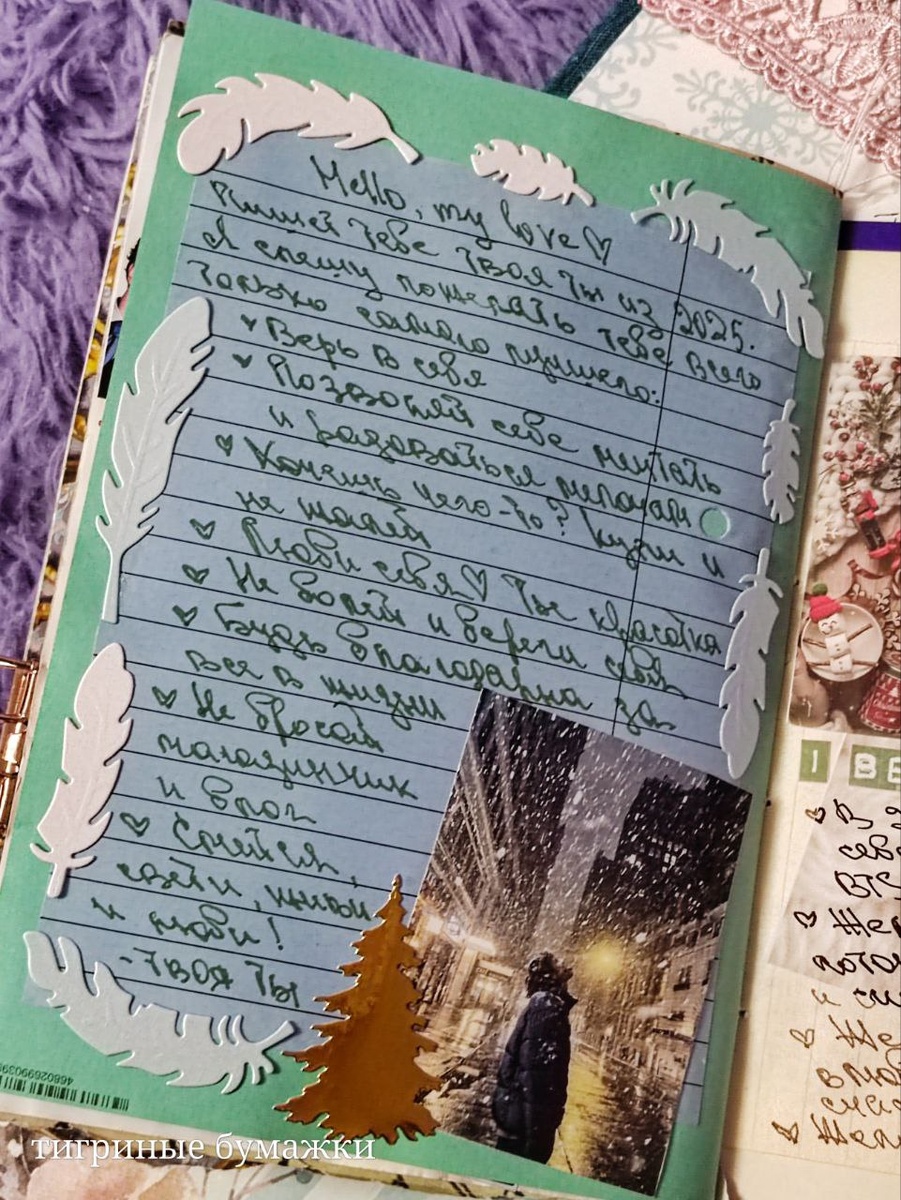 Hello, my love♡
Пишет тебе твоя ты из 2025.
Я спешу пожелать тебе всего
только самого лучшего:
♡ Верь в себя
♡ Позволяй себе мечтать
и радоваться мелочам
♡ Хочешь чего-то? Купи и
не жалей
♡ Люби себя♡ Ты красотка
♡ Не болей и береги себя
♡ Будь благодарна за
всё в жизни
♡ Не бросай
и влог
♡ Смейся,
свети, живи
и люби!
-Твоя ты
468026699039
I BE
♡ В
себ
♡ Же
пото
и сч
♡ Же
влюб
счас
♡ Жел
тигриные бумажки